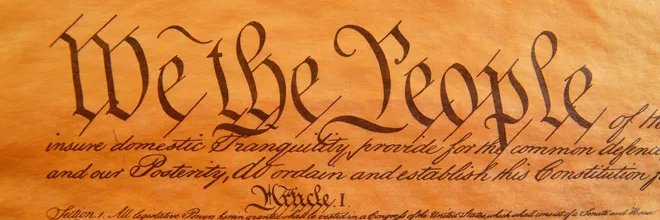 We the People of th
insure domestic Tranquility, provide for the common defence
and our Posterity, do ordain and establish this Constitution f
Article I.
Section 1. All legislative Powers herein granted shall be vested in a Congress of the United States, which shall consist of a Senate and House